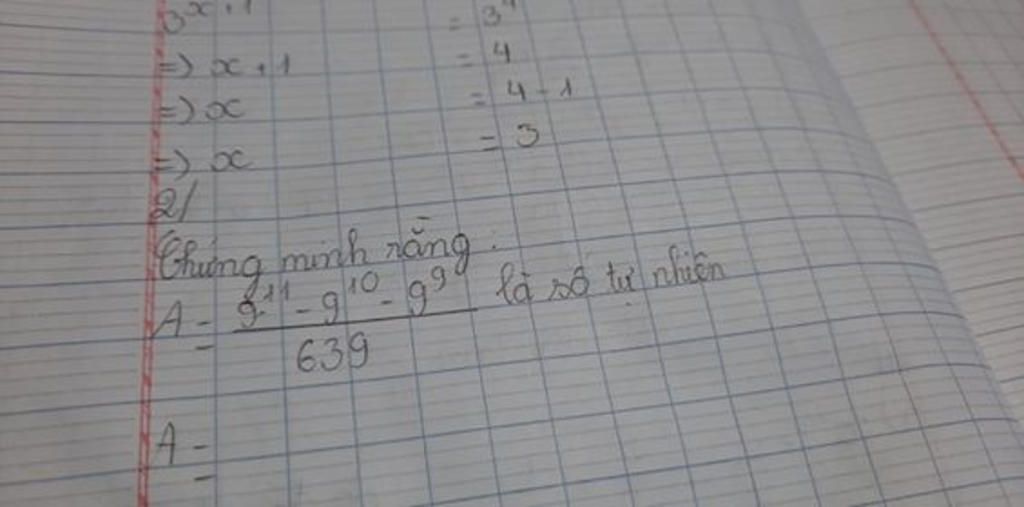 3^x+1 = 3^4
=) x+1 = 4
=) x = 4-1
=) x = 3
2/
Chứng minh rằng:
A = (9^11 - 9^10 - 9^9)/639 là số tự nhiên
A =